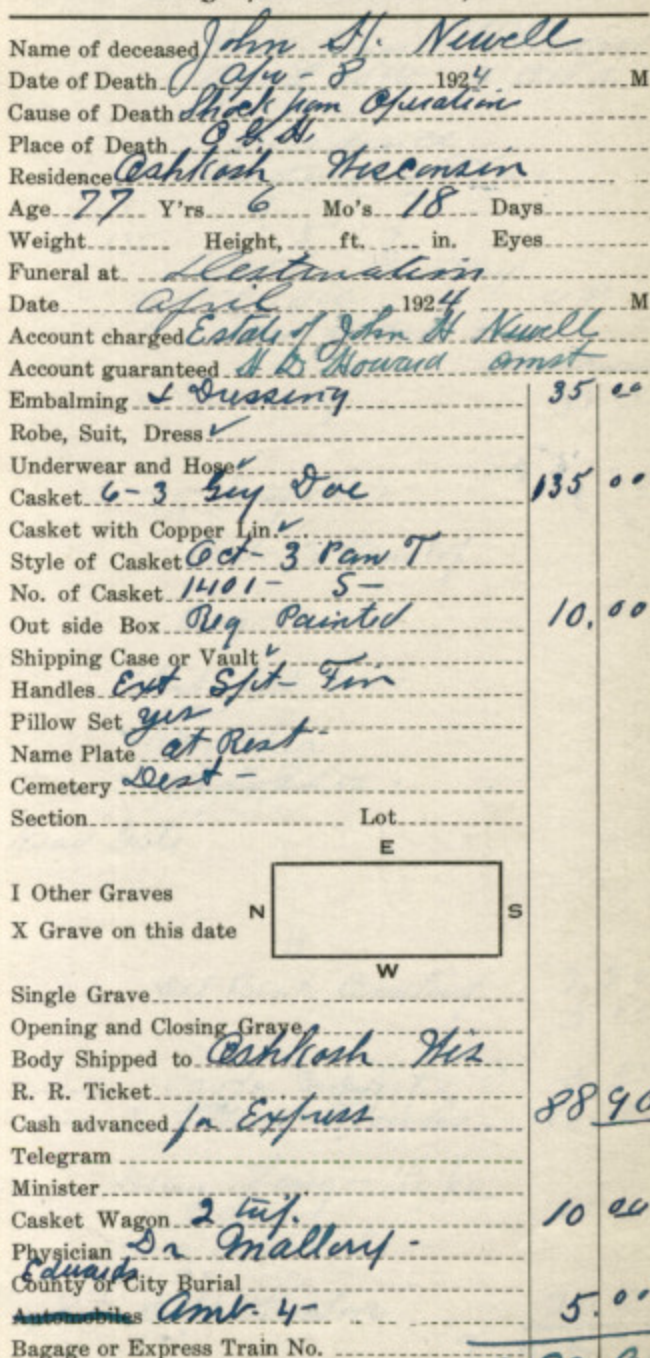 Name of deceased John H. Newell
Date of Death Apr - 8 1924 M
Cause of Death Shock from Operation
Place of Death O.G.H.
Residence Oshkosh Wisconsin
Age 77 Y'rs 6 Mo's 18 Days
Weight Height, ft. in. Eyes
Funeral at Destination
Date April 1924 M
Account charged Estate of John H Newell
Account guaranteed H D Howard
Embalming & Dressing 35 00
Robe, Suit, Dress ✓
Underwear and Hose ✓
Casket 6-3 Gry Doe 135 00
Casket with Copper Lin. ✓
Style of Casket Oct - 3 Pan T
No. of Casket 1401 - S -
Out side Box Reg Painted 10.00
Shipping Case or Vault ✓
Handles Ext
Pillow Set yes
Name Plate at Rest -
Cemetery Dest -
Section Lot
E
I Other Graves
N S
X Grave on this date
W
Single Grave
Opening and Closing Grave
Body Shipped to Oshkosh Wis
R. R. Ticket
Cash advanced for Express 88 90
Telegram
Minister
Casket Wagon 2 10 00
Physician Dr Mallory -
Edwards
County or City Burial
Automobiles Amb. 4 - 5.00
Bagage or Express Train No.